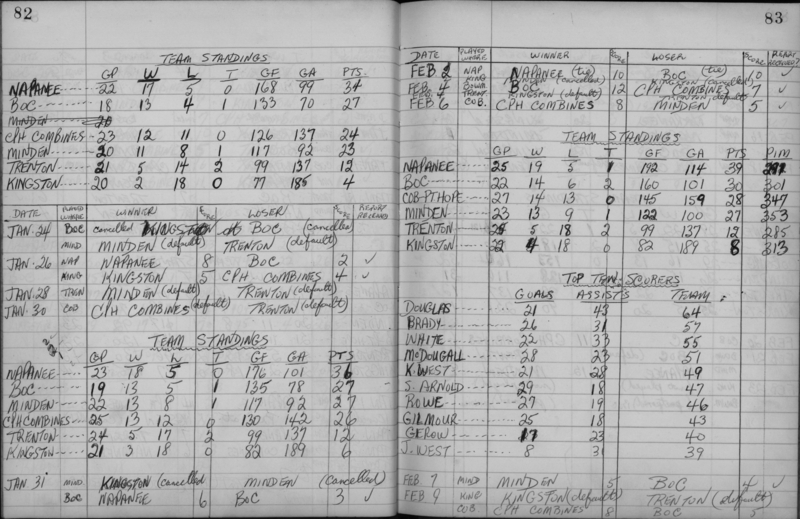 82
TEAM STANDINGS
GP W L T GF GA PTS.
NAPANEE 22 17 5 0 168 99 34
BOC 18 13 4 1 133 70 27
MINDEN 20
CPH COMBINES 23 12 11 0 126 137 24
MINDEN 20 11 8 1 117 92 23
TRENTON 21 5 14 2 99 137 12
KINGSTON 20 2 18 0 77 185 4
DATE PLAYED WHERE WINNER SCORE LOSER SCORE REPORT RECEIVED
JAN. 24 BOC cancelled KINGSTON at BOC (cancelled)
MIND MINDEN (default) TRENTON (default)
JAN. 26 NAP NAPANEE 8 BOC 2 ✓
KING KINGSTON 5 CPH COMBINES 4 ✓
JAN. 28 TREN MINDEN (default) TRENTON (default)
JAN. 30 COB CPH COMBINES (default) TRENTON (default)
TEAM STANDINGS
GP W L T GF GA PTS
NAPANEE 23 18 5 0 176 101 36
BOC 19 13 5 1 135 78 27
MINDEN 22 13 8 1 117 92 27
CPH COMBINES 25 13 12 0 130 142 26
TRENTON 24 5 17 2 99 137 12
KINGSTON 21 3 18 0 82 189 6
JAN 31 MIND. KINGSTON (cancelled MINDEN (cancelled)
BOC NAPANEE 6 BOC 3 ✓
83
DATE PLAYED WHERE WINNER SCORE LOSER SCORE REPORT RECEIVED
FEB. 2 NAP NAPANEE (tie) 10 BOC (tie) 10 ✓
KING MINDEN (cancelled) KINGSTON (cancelled)
FEB. 4 BOWM. BOC 12 CPH COMBINES 7 ✓
TRENT. KINGSTON (default) TRENTON (default)
FEB 6 COB. CPH COMBINES 8 MINDEN 5 ✓
TEAM STANDINGS
GP W L T GF GA PTS PIM
NAPANEE 25 19 5 1 192 114 39
BOC 22 14 6 2 160 101 30 301
COB-PT HOPE 27 14 13 0 145 159 28 347
MINDEN 23 13 9 1 122 100 27 353
TRENTON 5 18 2 99 137 12 285
KINGSTON 22 4 18 0 82 189 8 313
TOP TEN SCORERS
GOALS ASSISTS
DOUGLAS 21 43 64
BRADY 26 31 57
WHITE 22 33 55
McDOUGALL 28 23 51
K. WEST 21 28 49
S. ARNOLD 29 18 47
ROWE 27 19 46
GILMOUR 25 18 43
GEROW 17 23 40
J. WEST 8 31 39
FEB. 7 MIND MINDEN 5 BOC 4 ✓
FEB. 9 KING KINGSTON (default) TRENTON (default)
COB CPH COMBINES 8 BOC 5